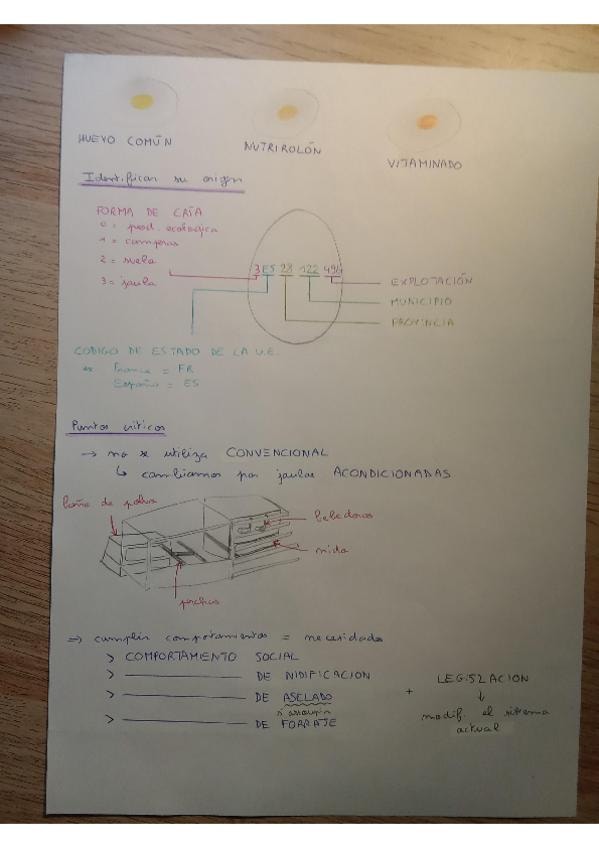 HUEVO COMÚN
NUTRIROLÓN
VITAMINADO
Identificar su origen
FORMA DE CRÍA
0 = prod. ecológica
1 = camperas
2 = suelo
3 = jaula
3 ES 28 122 496
EXPLOTACIÓN
MUNICIPIO
PROVINCIA
CODIGO DE ESTADO DE LA U.E.
ex France = FR
España = ES
Puntos críticos
→ no se utiliza CONVENCIONAL
↳ cambiamos por jaulas ACONDICIONADAS
baño de polvo
bebederos
nido
perchas
⇒ cumplir comportamientos = necesidades
> COMPORTAMIENTO SOCIAL
> ——— DE NIDIFICACION
> ——— DE ASELADO
> ——— DE FORRAJE
+ LEGISLACION
↓
modif. el sistema
actual